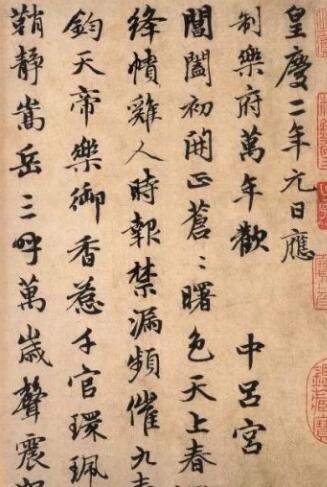 皇慶二年元日應
制樂府萬年歡 中呂宮
閶闔初開正蒼〻曙色天上春
絳幘雞人時報禁漏頻催九
鈞天帝樂御香惹千官環珮
鞘靜嵩岳三呼萬歲聲震